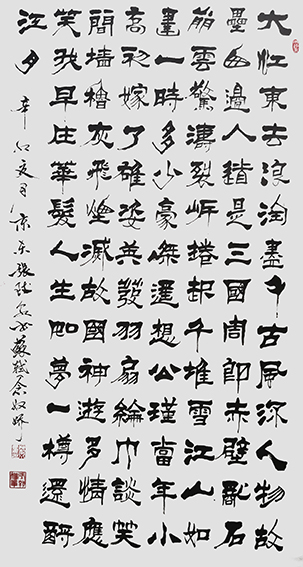 大江東去浪淘盡千古風流人物故
壘西邊人道是三國周郎赤壁亂石
崩雲驚濤裂岸捲起千堆雪江山如
畫一時多少豪傑遥想公瑾當年小
喬初嫁了雄姿英發羽扇綸巾談笑
間檣櫓灰飛煙滅故國神遊多情應
笑我早生華髮人生如夢一樽還酹
江月
辛卯夏月京張書蘇軾念奴嬌